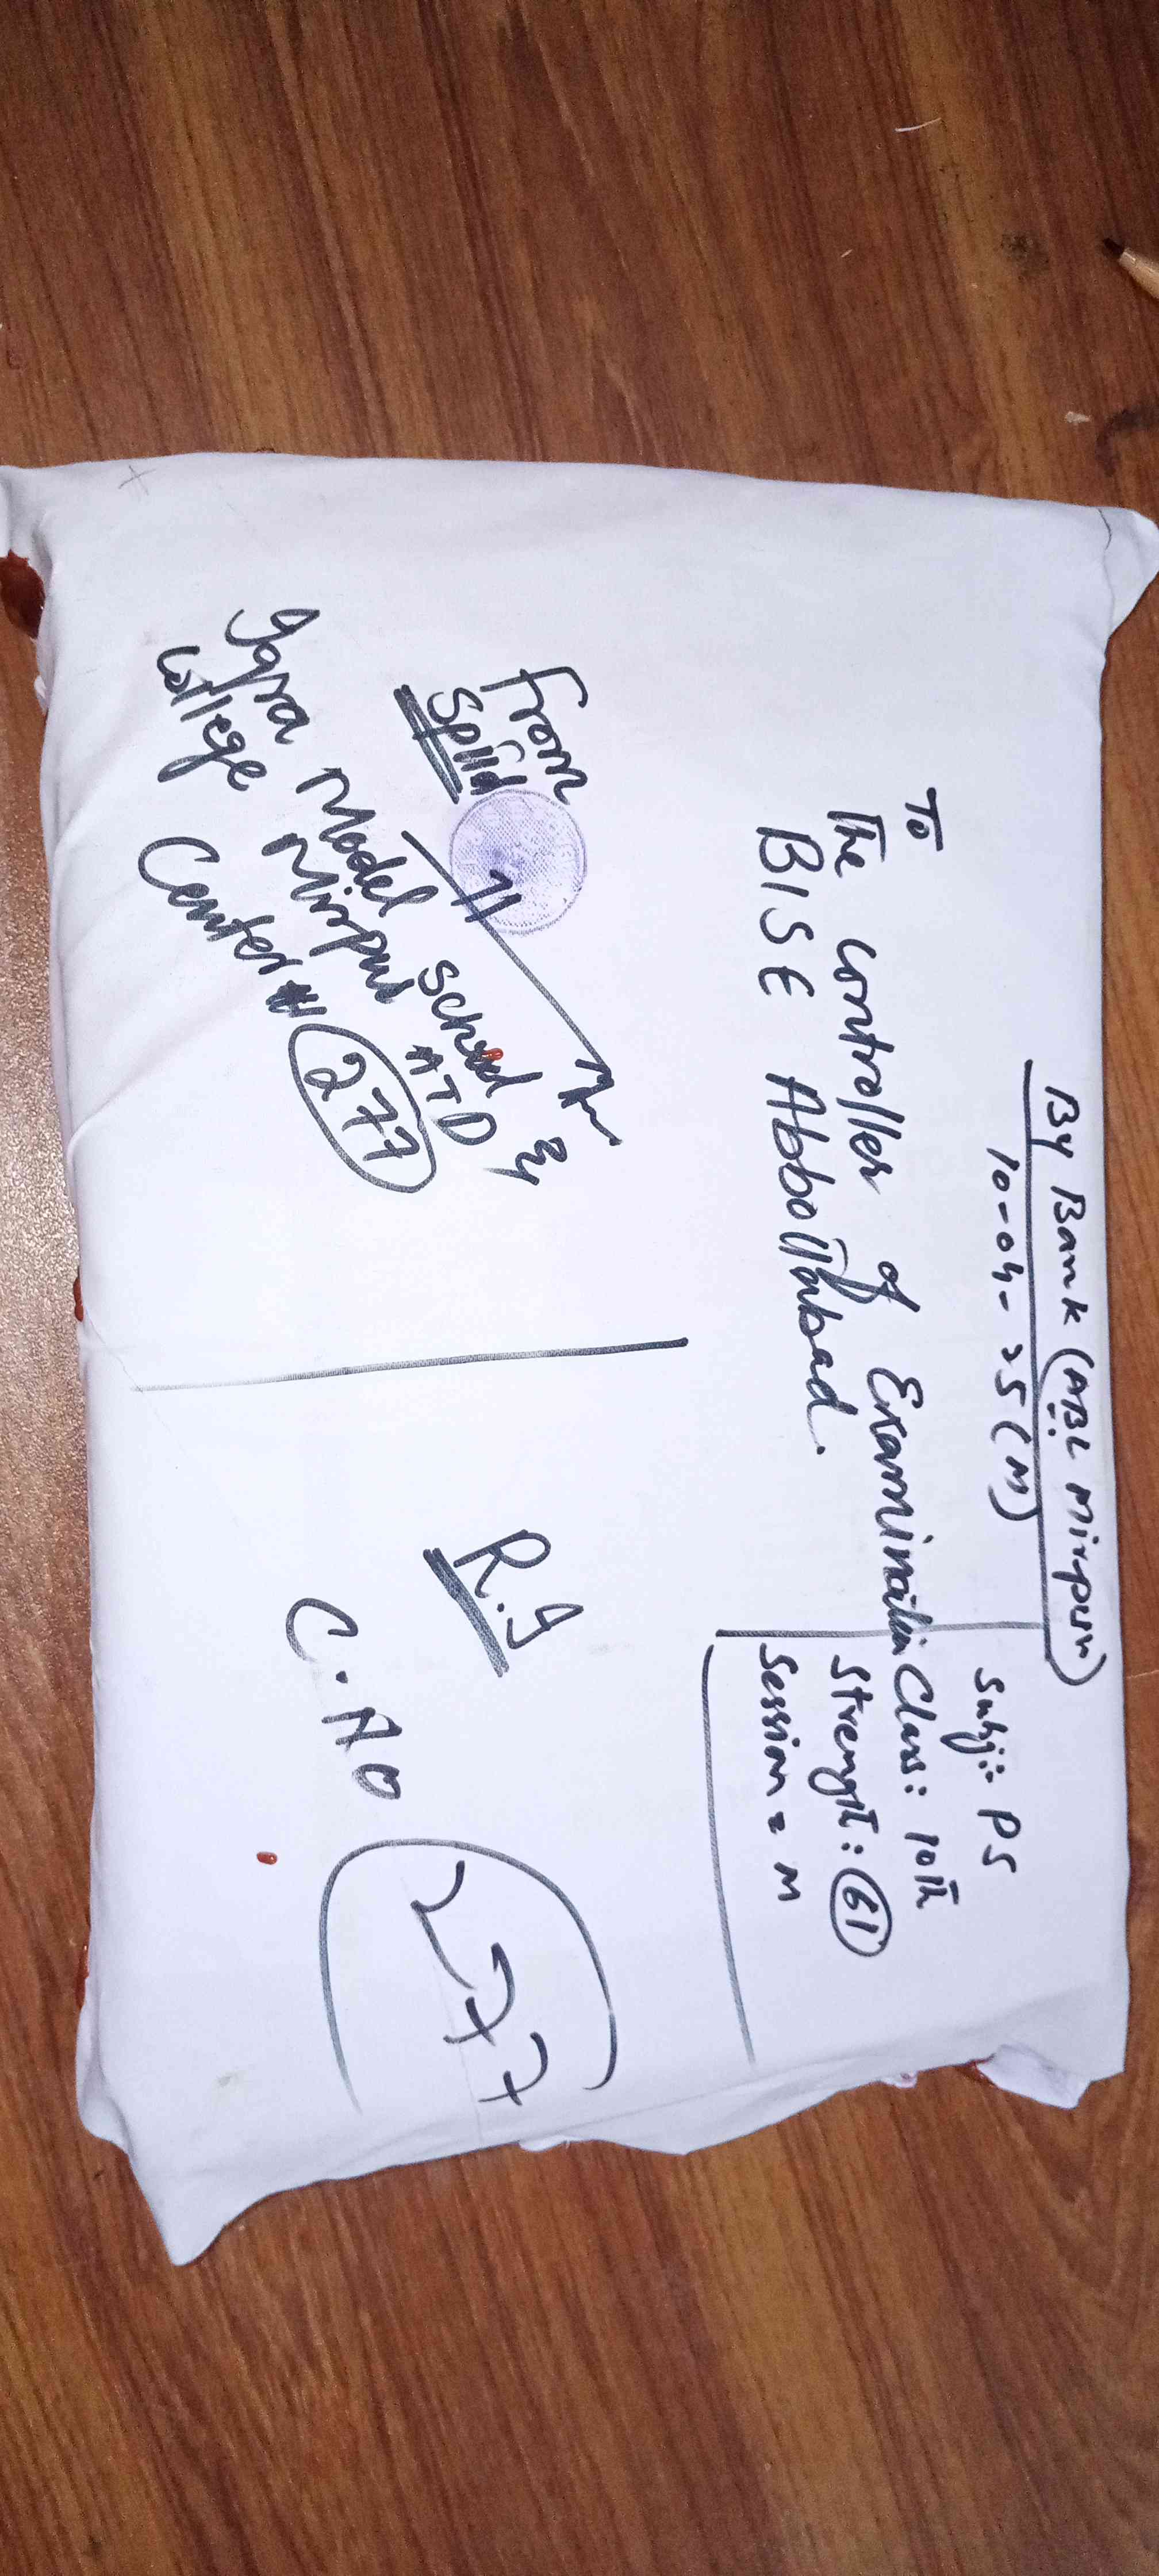 By Bank (ABL Mirpur)
10-04-25 (M)
Subj: PS
Class: 10th
Strength: 61
Session = M
To
The Controller of Examination
BISE Abbottabad.
From
Iqra Model School &
College Mirpur ATD
Center # 277
C.NO 277